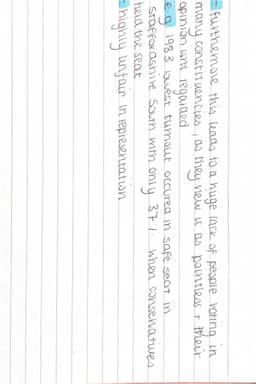 - Furthermore this leads to a huge lack of people voting in
many constituencies, as they view it as pointless + their
opinion isnt regarded
e.g 1983 lowest turnout occured in safe seat in
Staffordshire South with only 37% when conservatives
held the seat
- highly unfair in representation